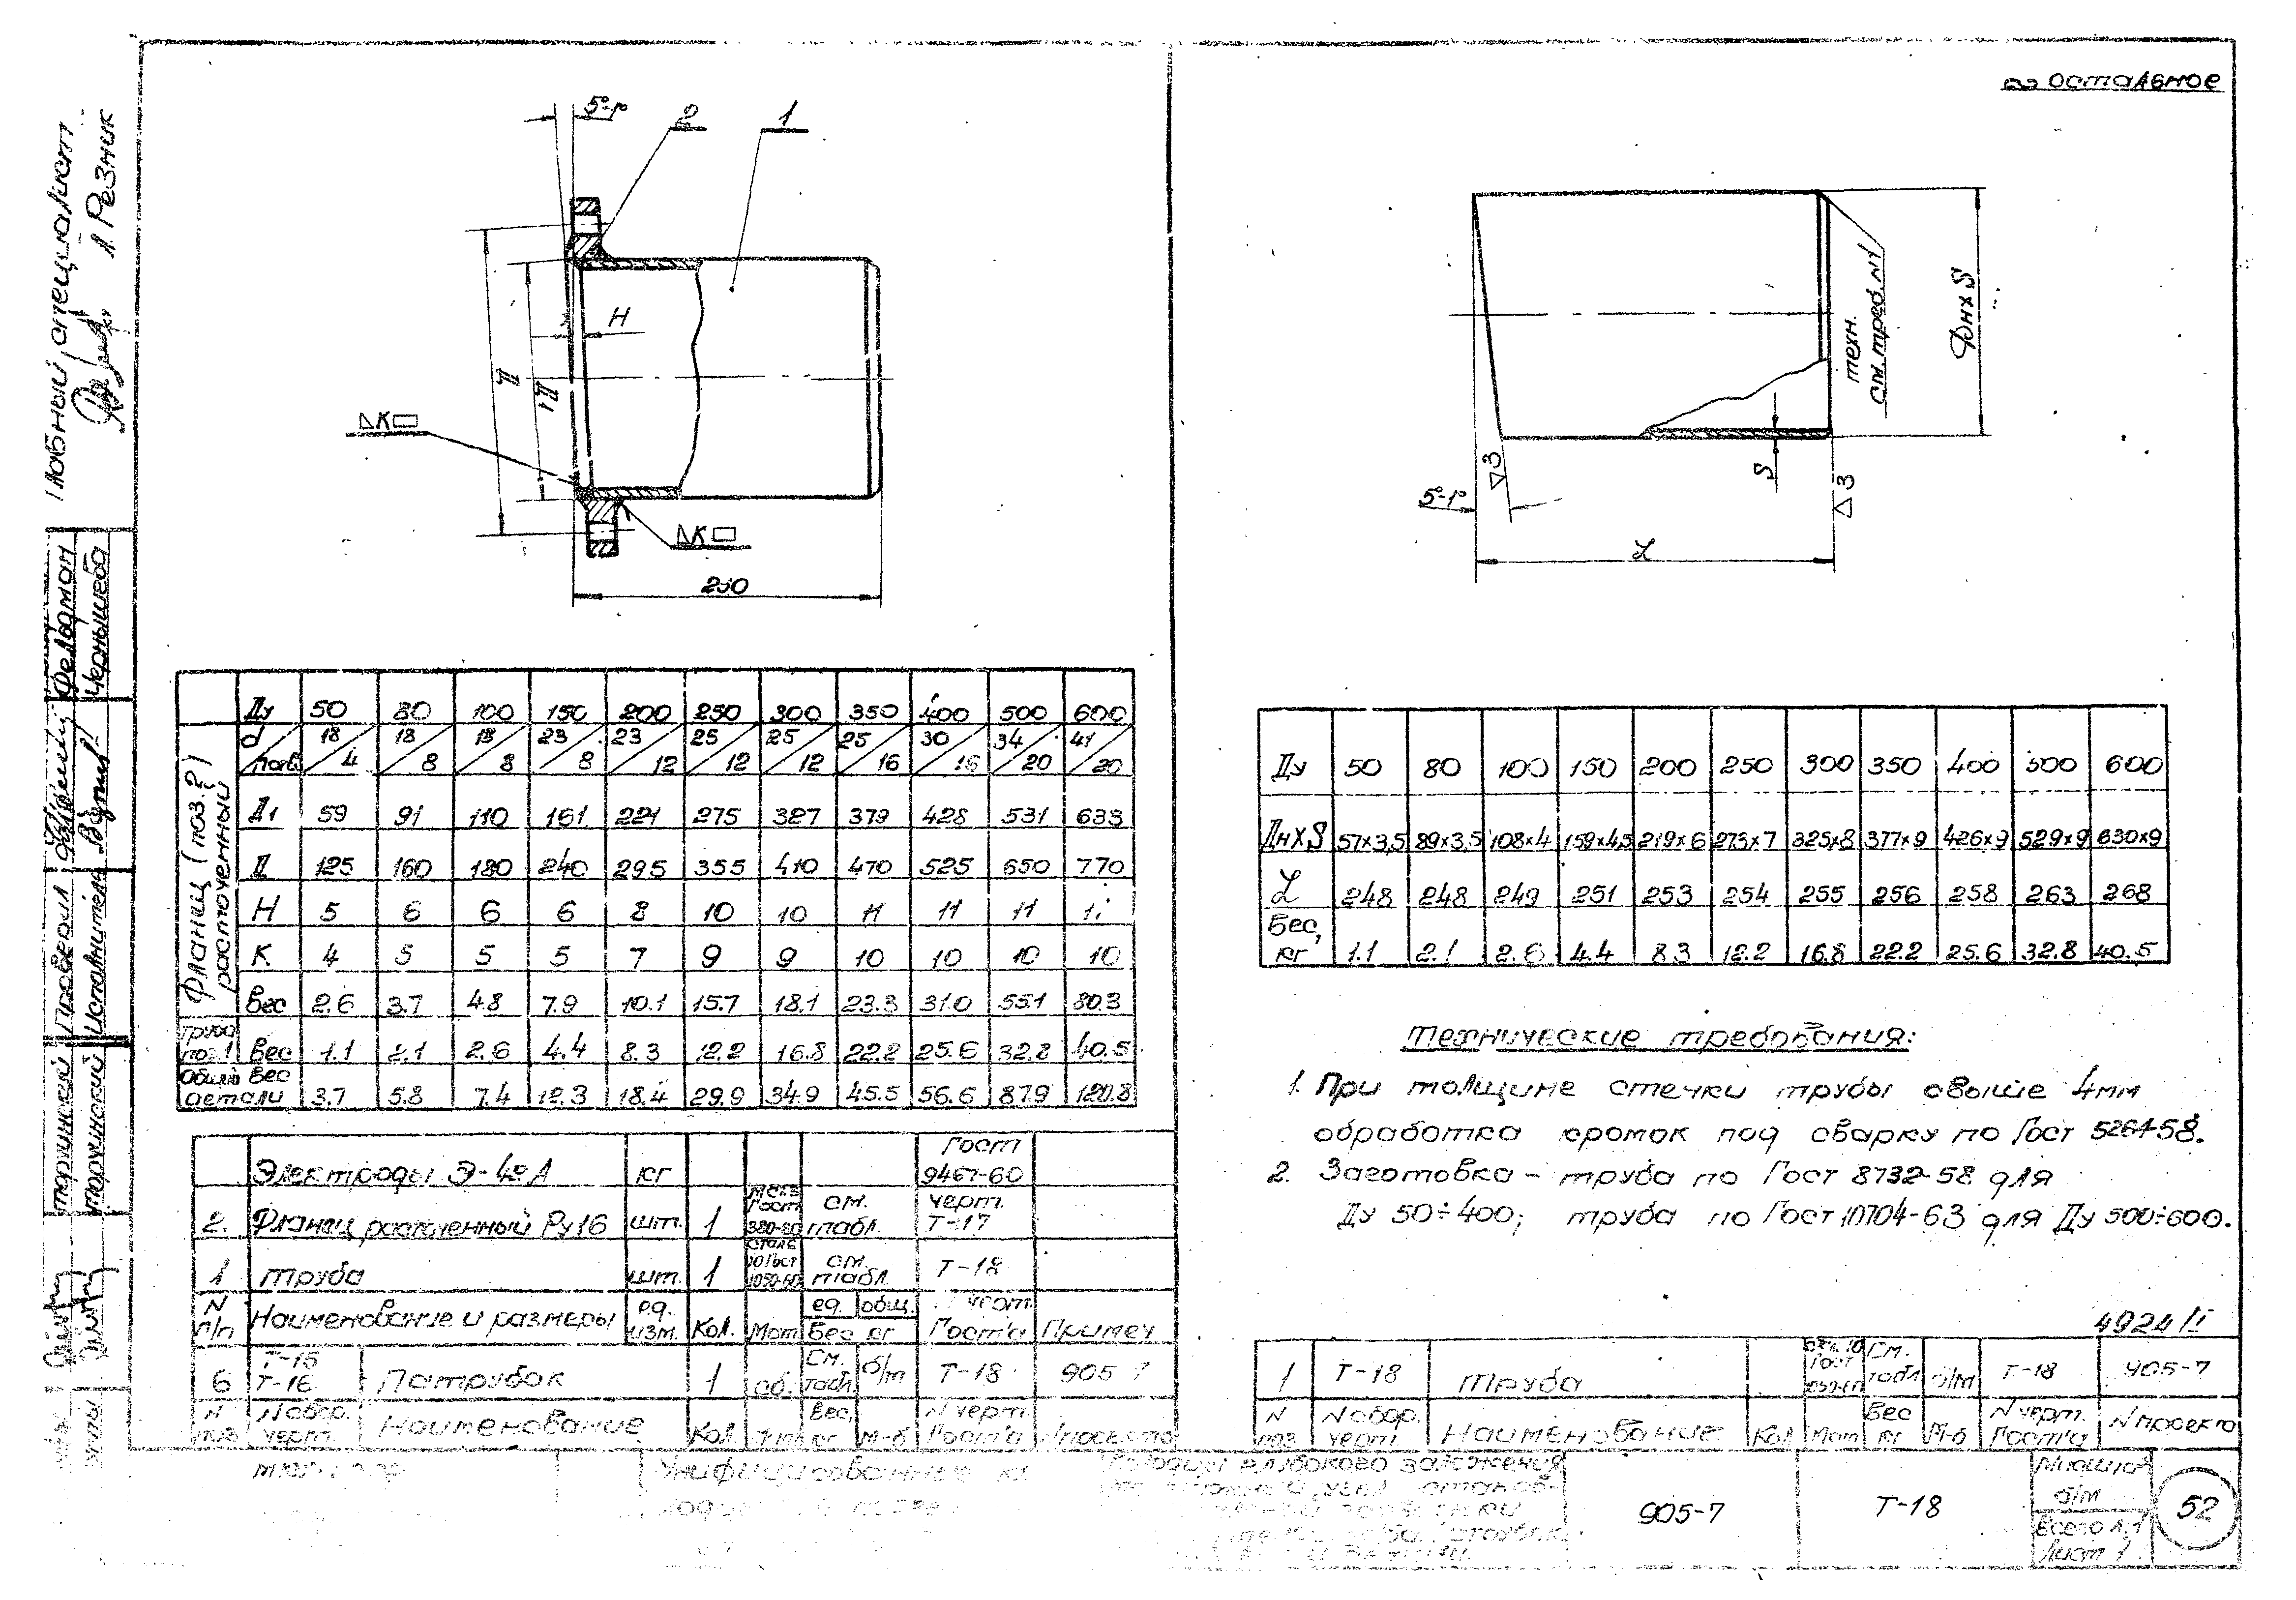 ∾ остальное
5°-1°
2
1
H
Д
Д1
ΔK▭
ΔK▭
250
Ду 50 80 100 150 200 250 300 350 400 500 600
d 18 18 18 23 23 25 25 25 30 34 41
nотв. 4 8 8 8 12 12 12 16 16 20 20
Фланец (поз.2) расточенный
Д1 59 91 110 161 221 275 327 379 428 531 633
Д 125 160 180 240 295 355 410 470 525 650 770
H 5 6 6 6 8 10 10 11 11 11
K 4 5 5 5 7 9 9 10 10 10 10
Вес 2.6 3.7 4.8 7.9 10.1 15.7 18.1 23.3 31.0 55.1 80.3
Труба поз.1 Вес 1.1 2.1 2.6 4.4 8.3 12.2 16.8 22.2 25.6 32.8 40.5
Общий вес детали 3.7 5.8 7.4 12.3 18.4 29.9 34.9 45.5 56.6 87.9 120.8
Электроды Э-42А кг Гост 9467-60
2. Фланец расточенный Ру16 шт. 1 Гост 380-60 см. табл. черт. Т-17
1 труба шт. 1 сталь 10 Гост 1050-60 см. табл. Т-18
N п/п Наименование и размеры ед. изм. Кол. Мат ед. общ. Вес кг черт. Гост'а Примеч
6 Т-15 Т-16 Патрубок 1 сб. См. табл. б/м Т-18 905-7
N поз N сбор. черт. Наименование Кол. Вес, кг м-б N черт. Гост'а
техн.
см. треб. N1
Дн×S
S
▽3
5°-1°
▽3
L
Ду 50 80 100 150 200 250 300 350 400 500 600
Дн×S 57×3,5 89×3,5 108×4 159×4,5 219×6 273×7 325×8 377×9 426×9 529×9 630×9
L 248 248 249 251 253 254 255 256 258 263 268
Вес, кг 1.1 2.1 2.6 4.4 8.3 12.2 16.8 22.2 25.6 32.8 40.5
Технические требования:
1. При толщине стенки трубы свыше 4мм
обработка кромок под сварку по Гост 5264-58.
2. Заготовка – труба по Гост 8732-58 для
Ду 50÷400; труба по Гост 10704-63 для Ду 500÷600.
4924/I
1 Т-18 труба См. табл б/м Т-18 905-7
N поз N сбор. черт. Наименование Кол Мат Вес кг М-б N черт. Гост'а N проекта
Унифицированные
глубокого заложения
905-7
Т-18
б/м
Всего л.1
Лист 1
52
Главный специалист
Л. Резник
Фельдман
Чернышева
Проверил
Исполнитель